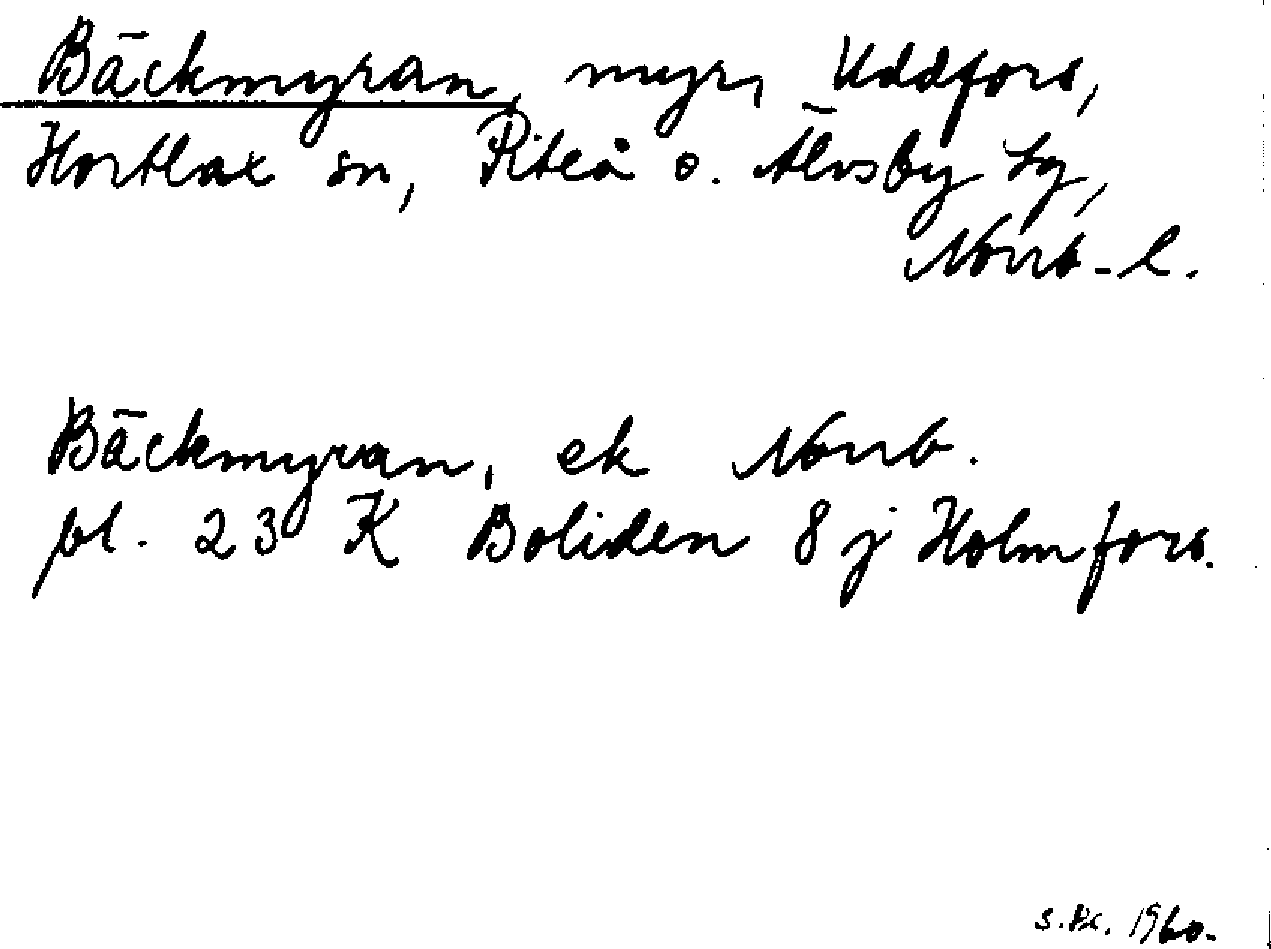 Bäckmyran, myr, Uddfors,
Hortlax sn, Piteå o. Älvsby tg,
Norrb. l.
Bäckmyran, ek Norrb.
bl. 23 K Boliden 8 j Holmfors.
1960.